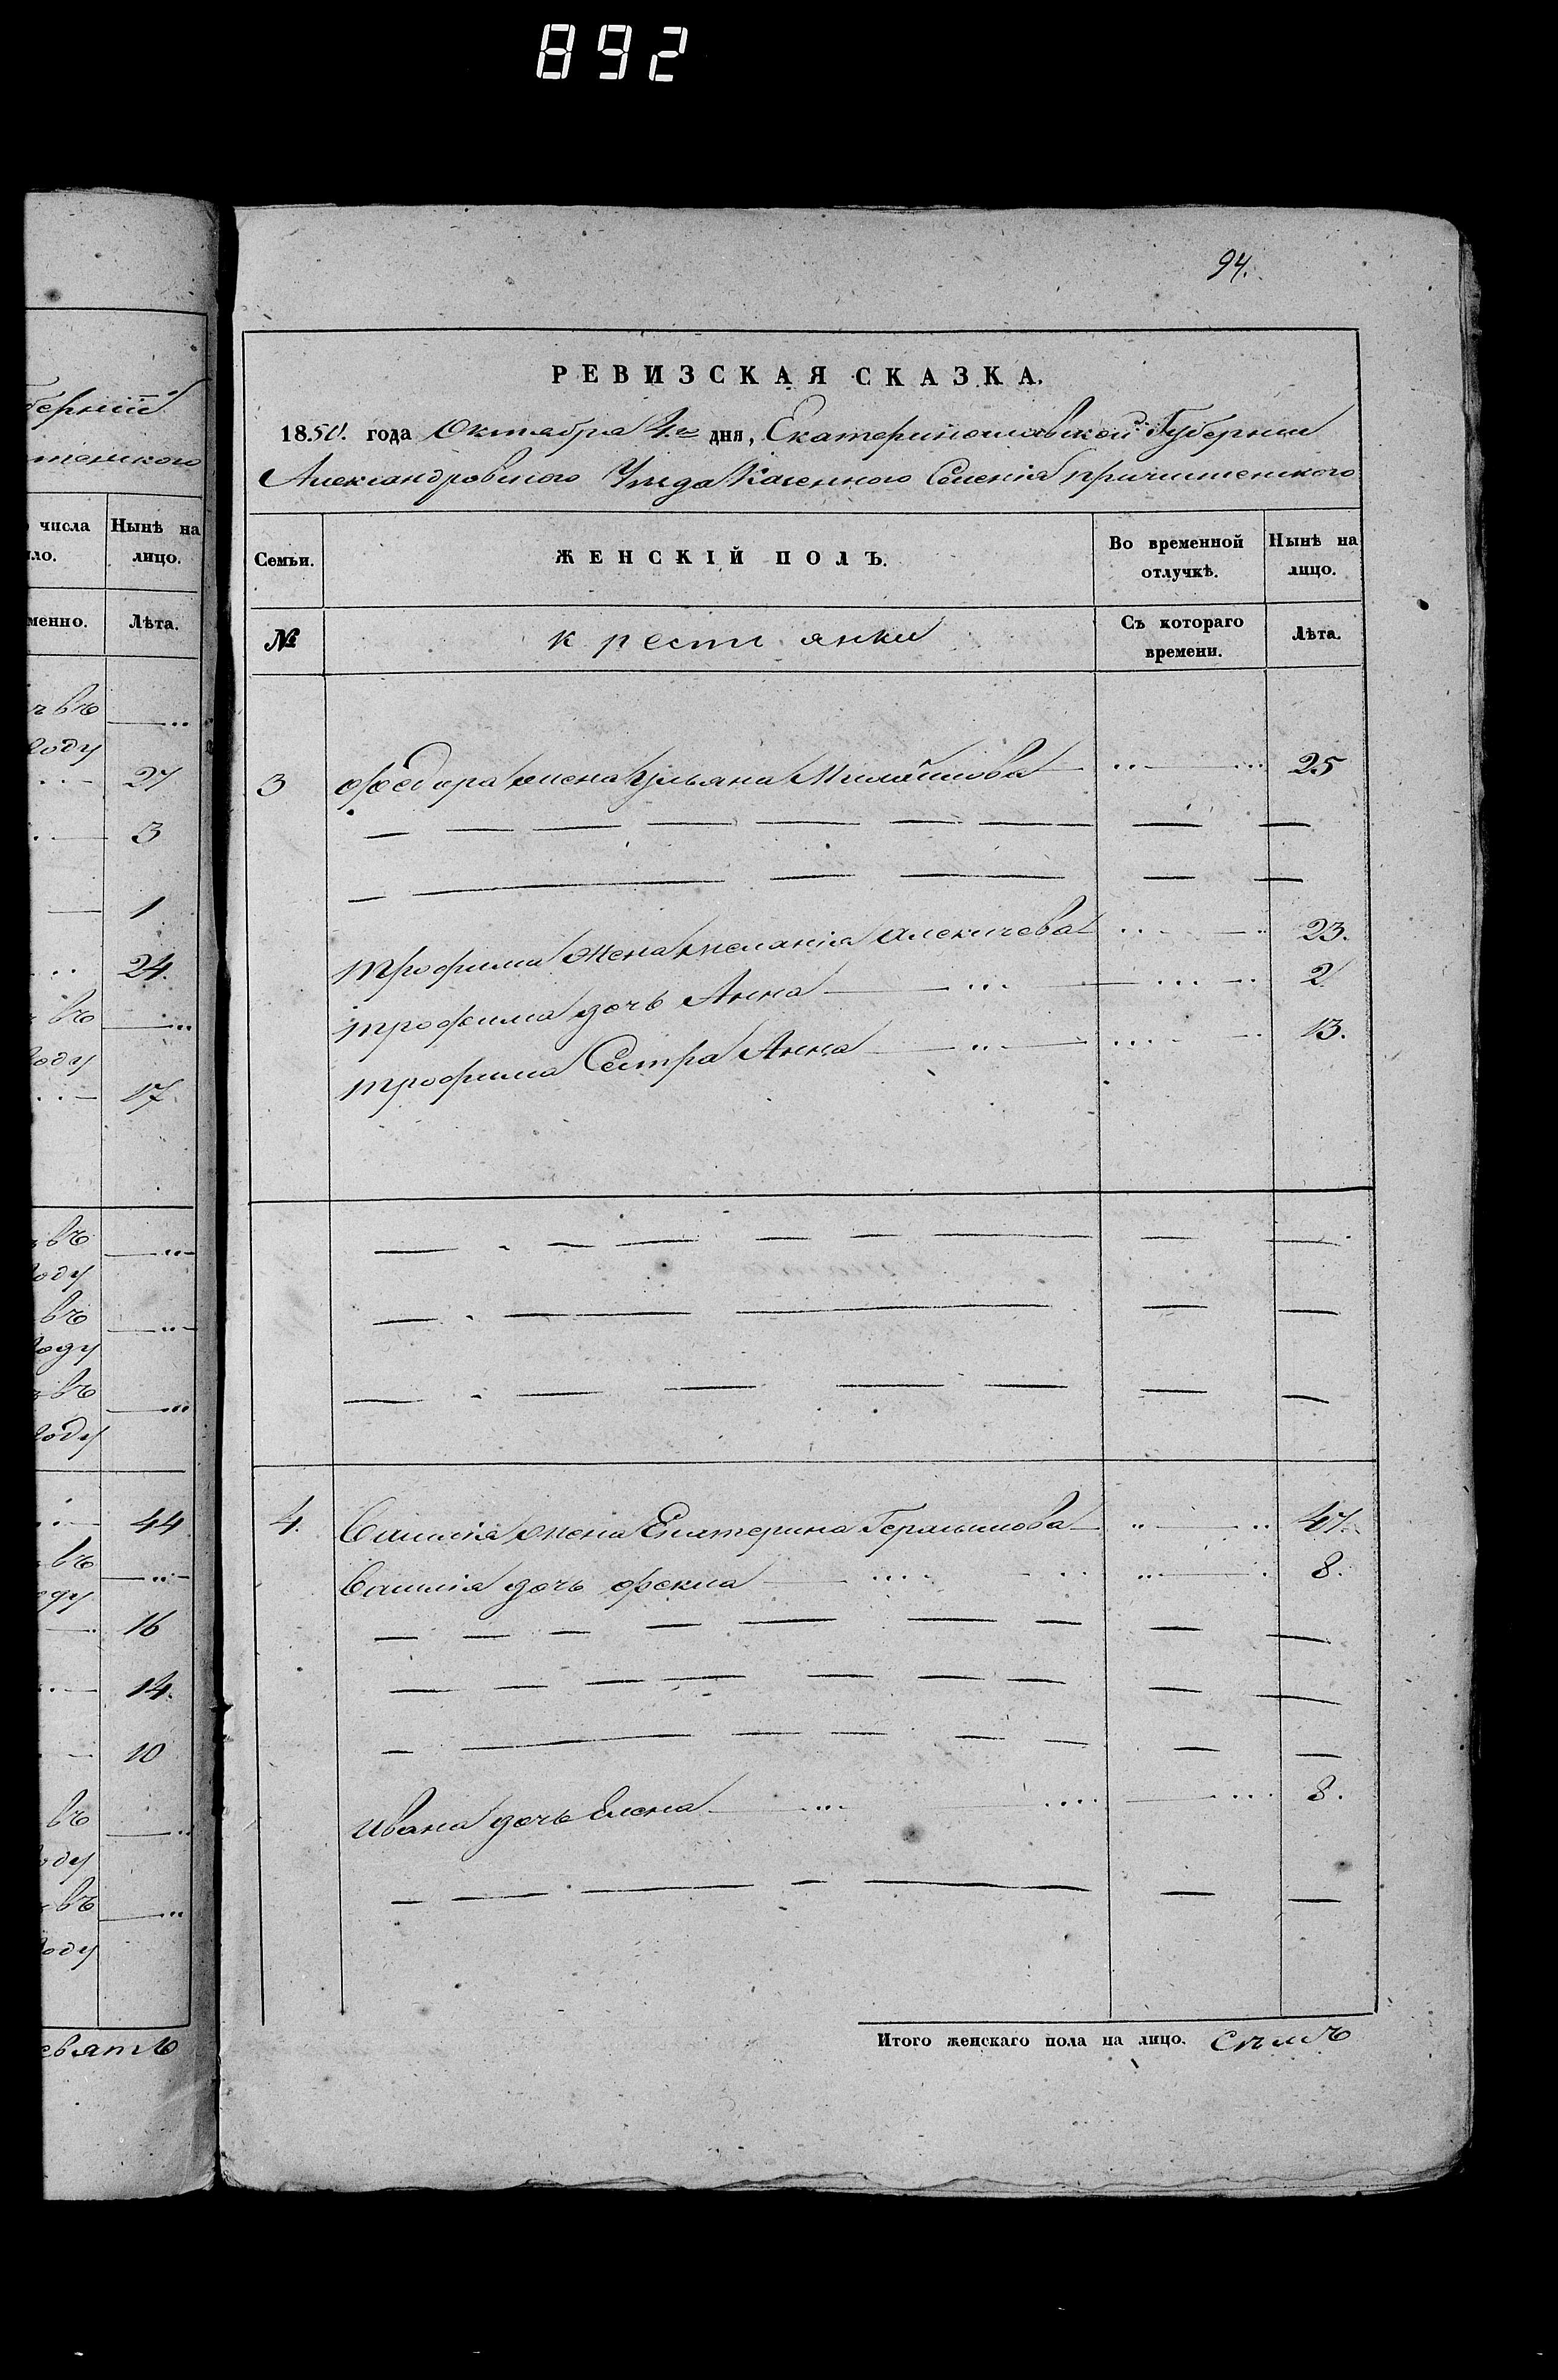 892
94.
РЕВИЗСКАЯ СКАЗКА.
1850. года Октября 4.го дня, Екатеринославской Губернии
Александровского Уезда Казенного Селения Пречистенского
Семьи. ЖЕНСКІЙ ПОЛЪ. Во временной отлучкѣ. Нынѣ на лицо.
№ крестьянки Съ котораго времени. Лѣта.
3 Федора жена Ульяна Михайлова 25
Трофима жена Мелания Алексеева 23.
Трофима дочь Анна 2.
Трофима Сестра Анна 13.
4. Василия жена Екатерина Герасимова 47.
Василия дочь Фекла 8.
Ивана дочь Елена 8.
Итого женскаго пола на лицо. Семъ
берний
тенского
числа Нынѣ на
ло. лицо.
менно. Лѣта.
въ
году
27
3
1
24.
въ
году
17.
въ
году
въ
году
въ
году
44
въ
году
16
14.
10
въ
году
въ
году
евять